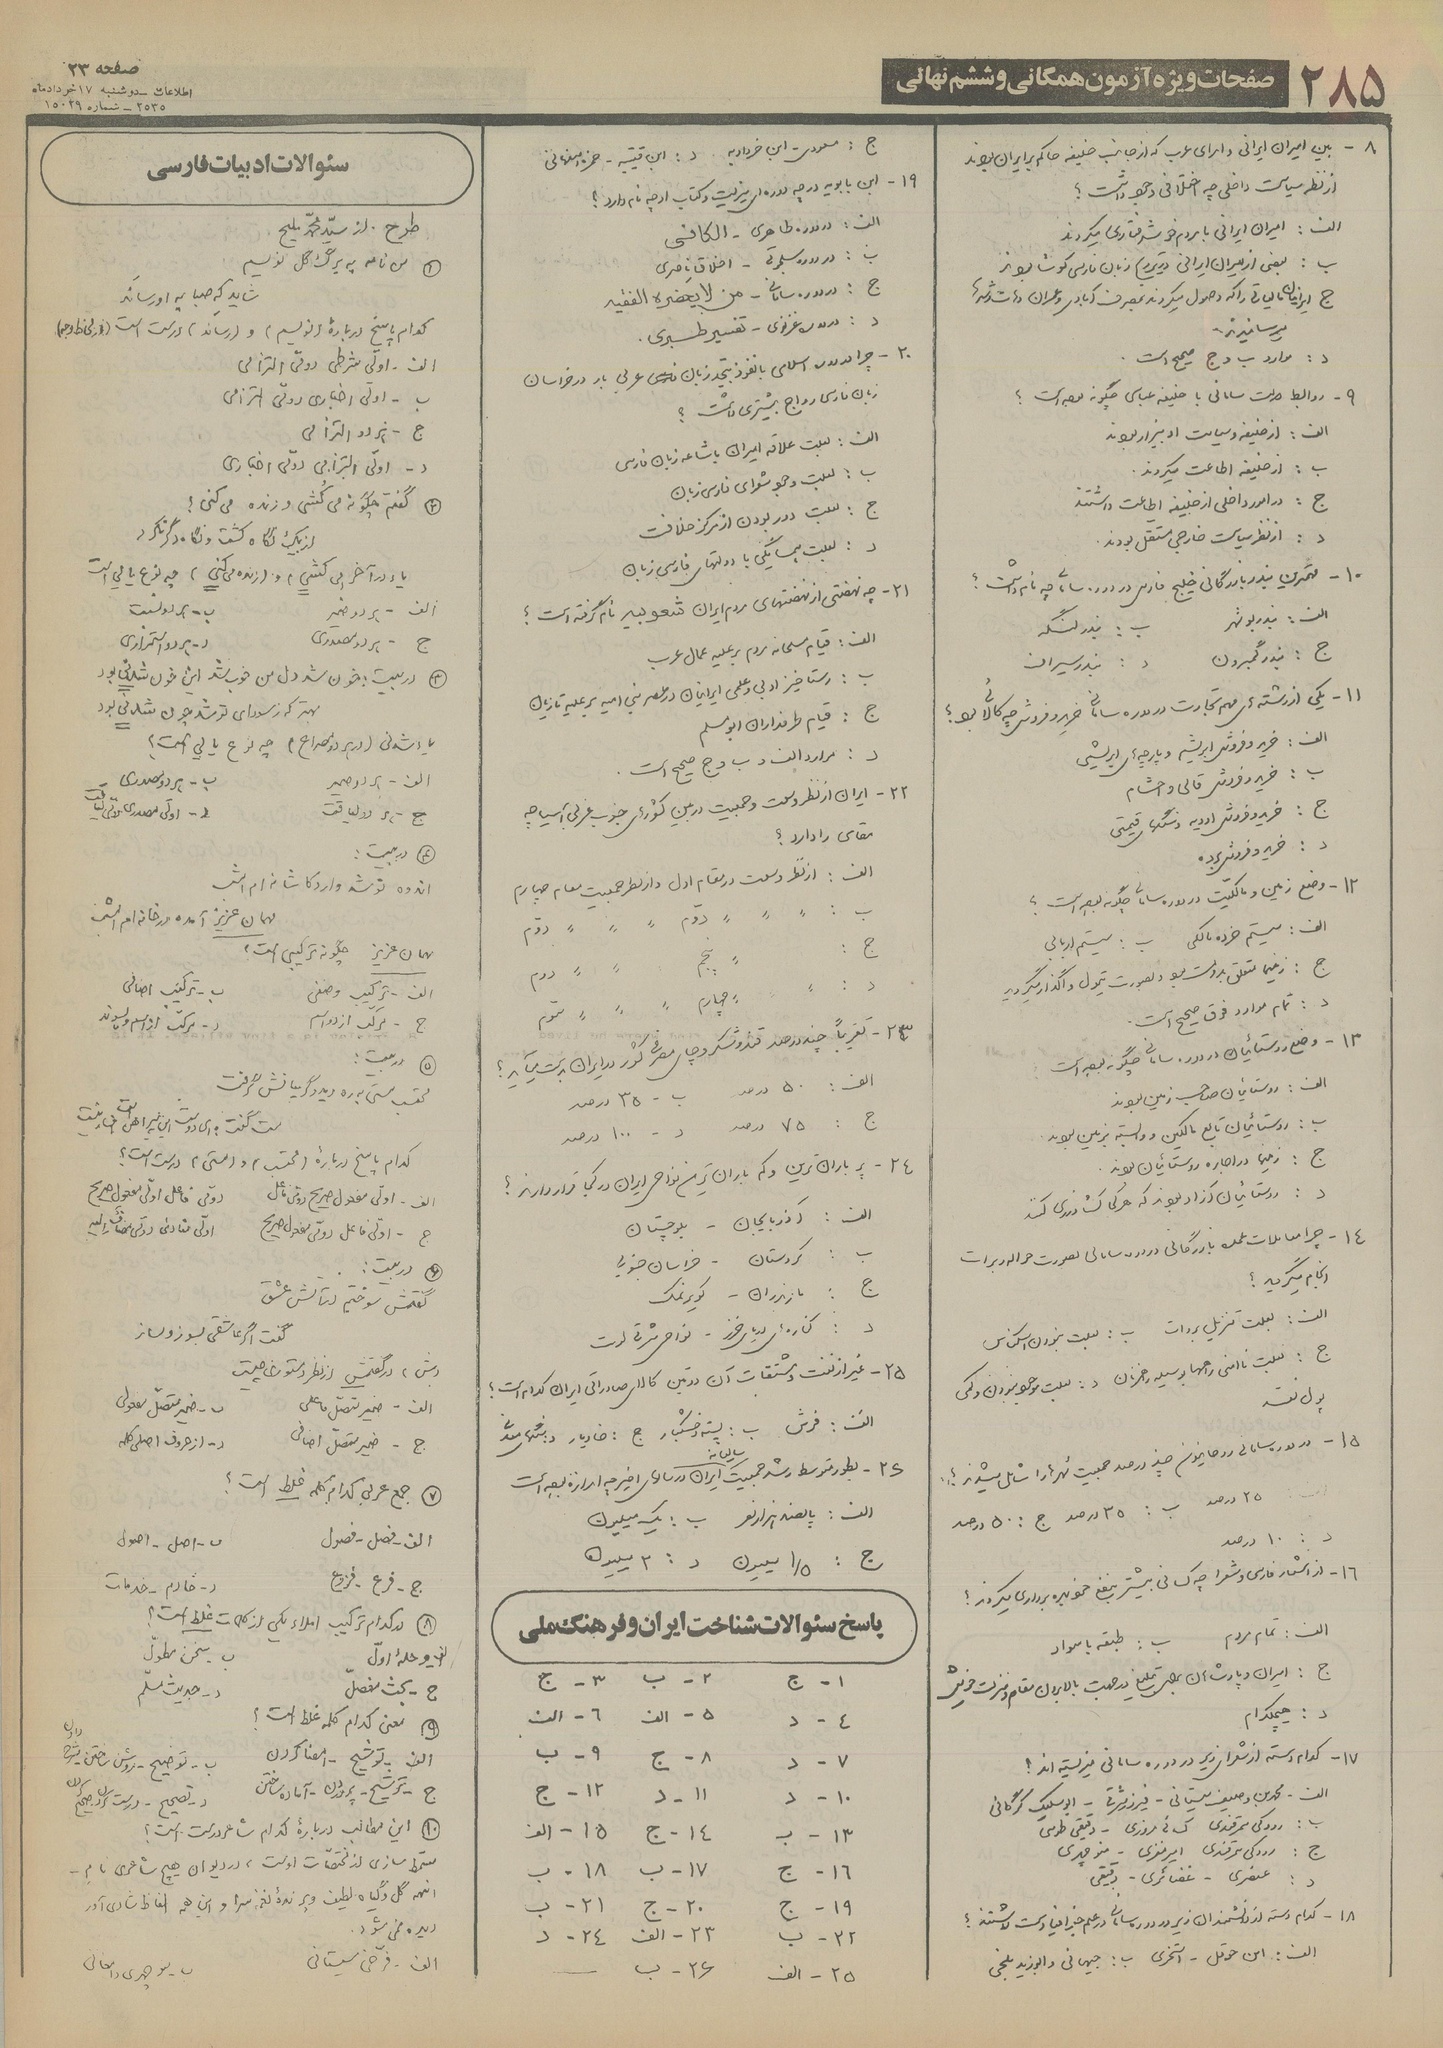 ۲۸۵
صفحات ویژه آزمون همگانی و ششم نهائی
صفحه ۲۳
اطلاعات ـ دوشنبه ۱۷ خردادماه
۲۵۳۵ ـ شماره ۱۵۰۲۹
۸ - بین امیران ایرانی و امرای عرب که از جانب خلیفه حاکم بر ایران بودند
از نظر سیاست داخلی چه اختلافی وجود داشت ؟
الف : امیران ایرانی با مردم خوشرفتاری میکردند
ب : بعضی از امیران ایرانی در ترویج زبان فارسی کوشا بودند
ج : ایرانیان مالیاتی را که وصول میکردند بمصرف آبادی و عمران
میرسانیدند
د : موارد ب و ج صحیح است .
۹ - روابط دولت سامانی با خلیفه عباسی چگونه بوده است ؟
الف : از خلیفه و سیاست او بیزار بودند
ب : از خلیفه اطاعت میکردند .
ج : در امور داخلی از خلیفه اطاعت داشتند
د : از نظر سیاست خارجی مستقل بودند .
۱۰ - مهمترین بندر بازرگانی خلیج فارس در دوره سامانی چه نام داشت ؟
الف : بندر بوشهر ب : بندر لنگه
ج : بندر گمبرون د : بندر سیراف
۱۱ - یکی از رشته های مهم تجارت در دوره سامانی خرید و فروش چه کالائی بود ؟
الف : خرید و فروش ابریشم و پارچه های ابریشمی
ب : خرید و فروش قالی و احشام
ج : خرید و فروش ادویه و سنگهای قیمتی
د : خرید و فروش برده
۱۲ - وضع زمین و مالکیت در دوره سامانی چگونه بوده است ؟
الف : سیستم خرده مالکی ب : سیستم اربابی
ج : زمینها متعلق بدولت بود و بصورت تیول واگذار میگردید
د : تمام موارد فوق صحیح است .
۱۳ - وضع روستائیان در دوره سامانی چگونه بوده است
الف : روستائیان صاحب زمین بودند
ب : روستائیان تابع مالکین و وابسته بزمین بودند .
ج : زمینها در اجاره روستائیان بودند .
د : روستائیان آزاد بودند که هر کجا کشاورزی کنند
۱۴ - چرا معاملات عمده بازرگانی در دوره سامانی بصورت حواله و برات
انجام میگردید ؟
الف : بعلت تنزیل بروات ب : بعلت نبودن اسکناس
ج : بعلت ناامنی راهها بوسیله راهزنان د : بعلت موجود نبودن و کمی
پول نقد
۱۵ - در دوره سامانی روحانیون چند درصد جمعیت شهرها را شامل میشدند ؟
۲۵ درصد ب : ۳۵ درصد ج : ۵۰ درصد
د : ۱۰ درصد
۱۶ - از اشعار فارسی و شعرا چه کسانی بیشتر بنفع خود بهره برداری میکردند ؟
الف : تمام مردم ب : طبقه باسواد
ج : امیران و پادشاهان برای تبلیغ در جهت بالا بردن مقام و منزلت خویش
د : هیچکدام
۱۷ - کدام دسته از شعرای زیر در دوره سامانی میزیسته اند ؟
الف - محمد بن وصیف سیستانی - فیروز مشرقی - ابوسلیک گرگانی
ب : رودکی سمرقندی کسائی مروزی - دقیقی طوسی
ج : رودکی سمرقندی - منوچهری
د : عنصری - غضائری - دقیقی
۱۸ - کدام دسته از دانشمندان زیر در دوره سامانی در علم جغرافیا دست داشتند ؟
الف : ابن حوقل - استخری ب : جیهانی و ابوزید بلخی
ج : مسعودی ابن خردادبه . د : ابن قتیبه - حمزه اصفهانی
۱۹ - ابن بابویه در چه دوره ای میزیست و کتاب او چه نام دارد ؟
الف : در دوره طاهری - الکافی
ب : در دوره سلجوقی - اخلاق ناصری
ج : در دوره سامانی - من لایحضره الفقیه
د : در دوره غزنوی - تفسیر طبری .
۲۰ - چرا در دوره اسلامی با نفوذ زبان عربی باز در خراسان
زبان فارسی رواج بیشتری داشت ؟
الف : بعلت علاقه امیران باشاعه زبان فارسی
ب : بعلت وجود شعرای فارسی زبان
ج : بعلت دور بودن از مرکز خلافت
د : بعلت همسایگی با دولتهای فارسی زبان
۲۱ - چه نهضتی از نهضتهای مردم ایران شعوبیه نام گرفته است ؟
الف : قیام مسلحانه مردم بر علیه عمال عرب
ب : رستاخیز ادبی و علمی ایرانیان در عصر بنی امیه بر علیه تازیان
ج : قیام طرفداران ابومسلم
د : موارد الف و ب و ج صحیح است .
۲۲ - ایران از نظر وسعت و جمعیت در بین کشورهای جنوب غربی آسیا چه
مقامی را دارد ؟
الف : از نظر وسعت در مقام اول و از نظر جمعیت مقام چهارم
ب : " " " دوم " " " دوم
ج : " پنجم " " دوم
د : " " چهارم " " " سوم
۲۳ - تقریباً چند درصد قند و شکر و چای مصرفی کشور در ایران بدست میآید ؟
الف : ۵۰ درصد ب - ۳۵ درصد
ج : ۷۵ درصد د - ۱۰۰ درصد
۲۴ - پر باران ترین و کم باران ترین نواحی ایران در کجا قرار دارند ؟
الف : آذربایجان - بلوچستان
ب : کردستان - خراسان جنوبی
ج : مازندران - کویر نمک
د : کناره های دریای خزر - نواحی شرقی لوت
۲۵ - غیر از نفت و مشتقات آن دومین کالای صادراتی ایران کدام است ؟
الف : فرش ب : پسته و خشکبار ج : خاویار د : سنگهای معدنی
۲۶ - بطور متوسط رشد جمعیت سالیانه ایران در سالهای اخیر چه اندازه بوده است
الف : پانصد هزار نفر ب : یک میلیون
ج : ۱/۵ میلیون د : ۲ میلیون
پاسخ سئوالات شناخت ایران و فرهنگ ملی
۱ - ج ۲ - ب ۳ - ج
۴ - د ۵ - الف ۶ - الف
۷ - د ۸ - ج ۹ - ب
۱۰ - د ۱۱ - د ۱۲ - ج
۱۳ - ب ۱۴ - ج ۱۵ - الف
۱۶ - ج ۱۷ - ب ۱۸ - ب
۱۹ - ج ۲۰ - ج ۲۱ - ب
۲۲ - ب ۲۳ - الف ۲۴ - د
۲۵ - الف ۲۶ - ب
سئوالات ادبیات فارسی
طرح : از سید محمد ملیح
۱ من نامه به برگ گل نویسم
شاید که صبا به او رساند
کدام پاسخ درباره (نویسم) و (رساند) درست است
الف - اولی شرطی دومی التزامی
ب - اولی اخباری دومی التزامی
ج - هر دو التزامی
د - اولی التزامی دومی اخباری
۲ گفتم چگونه می کشی و زنده می کنی ؟
از یک نگاه کشت و نگاه دگر نکرد
یاء در آخر (می کشی) و (زنده می کنی) چه نوع یایی است
الف - هر دو ضمیر ب - هر دو نسبت
ج - هر دو مصدری د - هر دو استمراری
۳ در بیت : خون شد دل من خوب شد این خون شدنی بود
بهتر که ز سودای تو شد چون شدنی بود
یاء شدنی (در هر دو مصراع) چه نوع یایی است ؟
الف - هر دو ضمیر ب - هر دو مصدری
ج - هر دو لیاقت د - اولی مصدری دومی لیاقت
۴ در بیت :
اندوه تو شد وارد کاشانه ام امشب
مهمان عزیز آمده در خانه ام امشب
مهمان عزیز چگونه ترکیبی است ؟
الف - ترکیب وصفی ب - ترکیب اضافی
ج - مرکب از دو اسم د - مرکب از اسم و پسوند
۵ در بیت :
محتسب مستی به ره دید و گریبانش گرفت
مست گفت : ای دوست این پیراهن است افسار نیست
کدام پاسخ درباره (محتسب) و (مستی) درست است ؟
الف - اولی مفعول صریح دومی فاعل دومی فاعل اولی مفعول صریح
ج - اولی فاعل دومی مفعول صریح اولی منادی دومی مضاف الیه
۶ در بیت :
گفتمش سوختم در آتش عشق
گفت اگر عاشقی بسوز و ساز
(ش) در گفتمش از نظر دستوری چیست
الف - ضمیر متصل فاعلی ب - ضمیر متصل مفعولی
ج - ضمیر متصل اضافی د - از حروف اصلی کلمه
۷ جمع عربی کدام کلمه غلط است ؟
الف - فصل - فصول ب - اصل - اصول
ج - فرع - فروع د - خادم - خدمات
۸ در کدام ترکیب املاء یکی از کلمات غلط است ؟
الف - وحله اول ب - سخن مطول
ج - بحث مفصل د - حدیث مسلم
۹ معنی کدام کلمه غلط است ؟
الف - توشیح - امضا کردن ب - توضیح - روشن ساختن شرح دادن
ج - ترشیح - پروردن - آماده ساختن د - تصحیح - درست کردن صحیح کردن
۱۰ این مطالب درباره کدام شاعر درست است ؟
مسمط سازی از مختصات اوست ، در دیوان هیچ شاعری نام -
اینهمه گل و گیاه لطیف و پرنده نغمه سرا و این همه الفاظ شادی آور
دیده نمی شود .
الف - فرخی سیستانی ب - منوچهری دامغانی